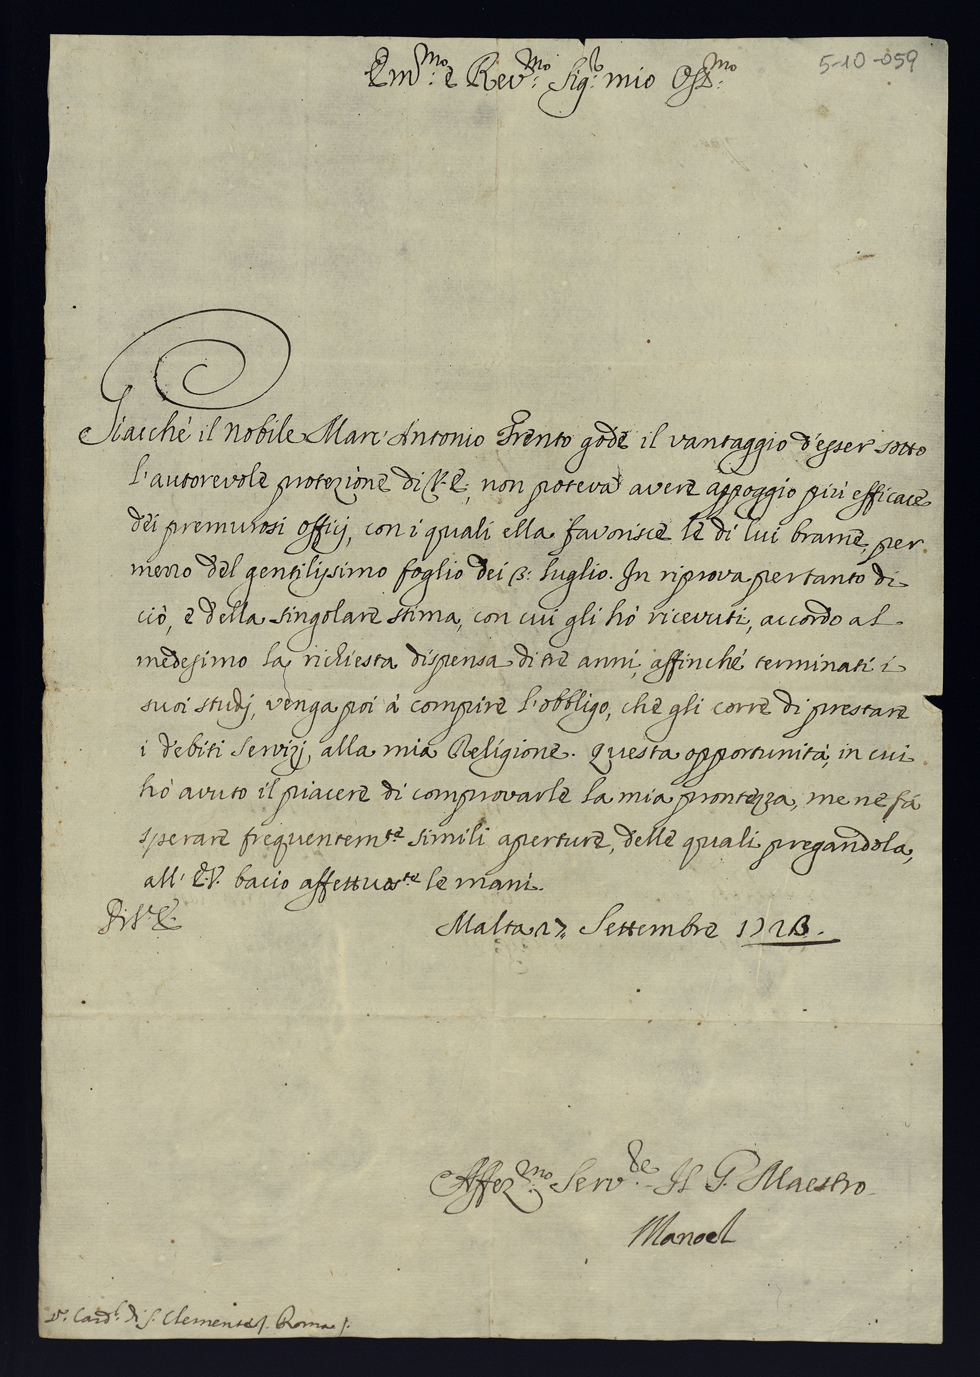 Em.mo e Rev.mo Sig.r mio Oss.mo
5-10-059
Giacché il Nobile Marc'Antonio Trento gode il vantaggio d'esser sotto
l'autorevole protezione di V.E., non poteva avere appoggio più efficace
dei premurosi offizj, con i quali ella favorisce le di lui brame, per
mezzo del gentilissimo foglio dei 13: luglio. In riprova pertanto di
ciò, e della singolare stima, con cui gli hó ricevuti, accordo al
medesimo la richiesta dispensa di tré anni, affinché terminati i
suoi studj, venga poi à compire l'obbligo, che gli corre di prestare
i debiti servizj, alla mia Religione. Questa opportunità, in cui
hó avuto il piacere di comprovarle la mia prontezza, me ne fà
sperare frequentem.te simili aperture, delle quali pregandola,
all'E.V. bacio affettuos.te le mani.
Di V.E.
Malta 27 Settembre 1723.
Affez.mo Serv.de Il G. Maestro
Manoel
S.r Card.l di S. Clemente /. Roma /.